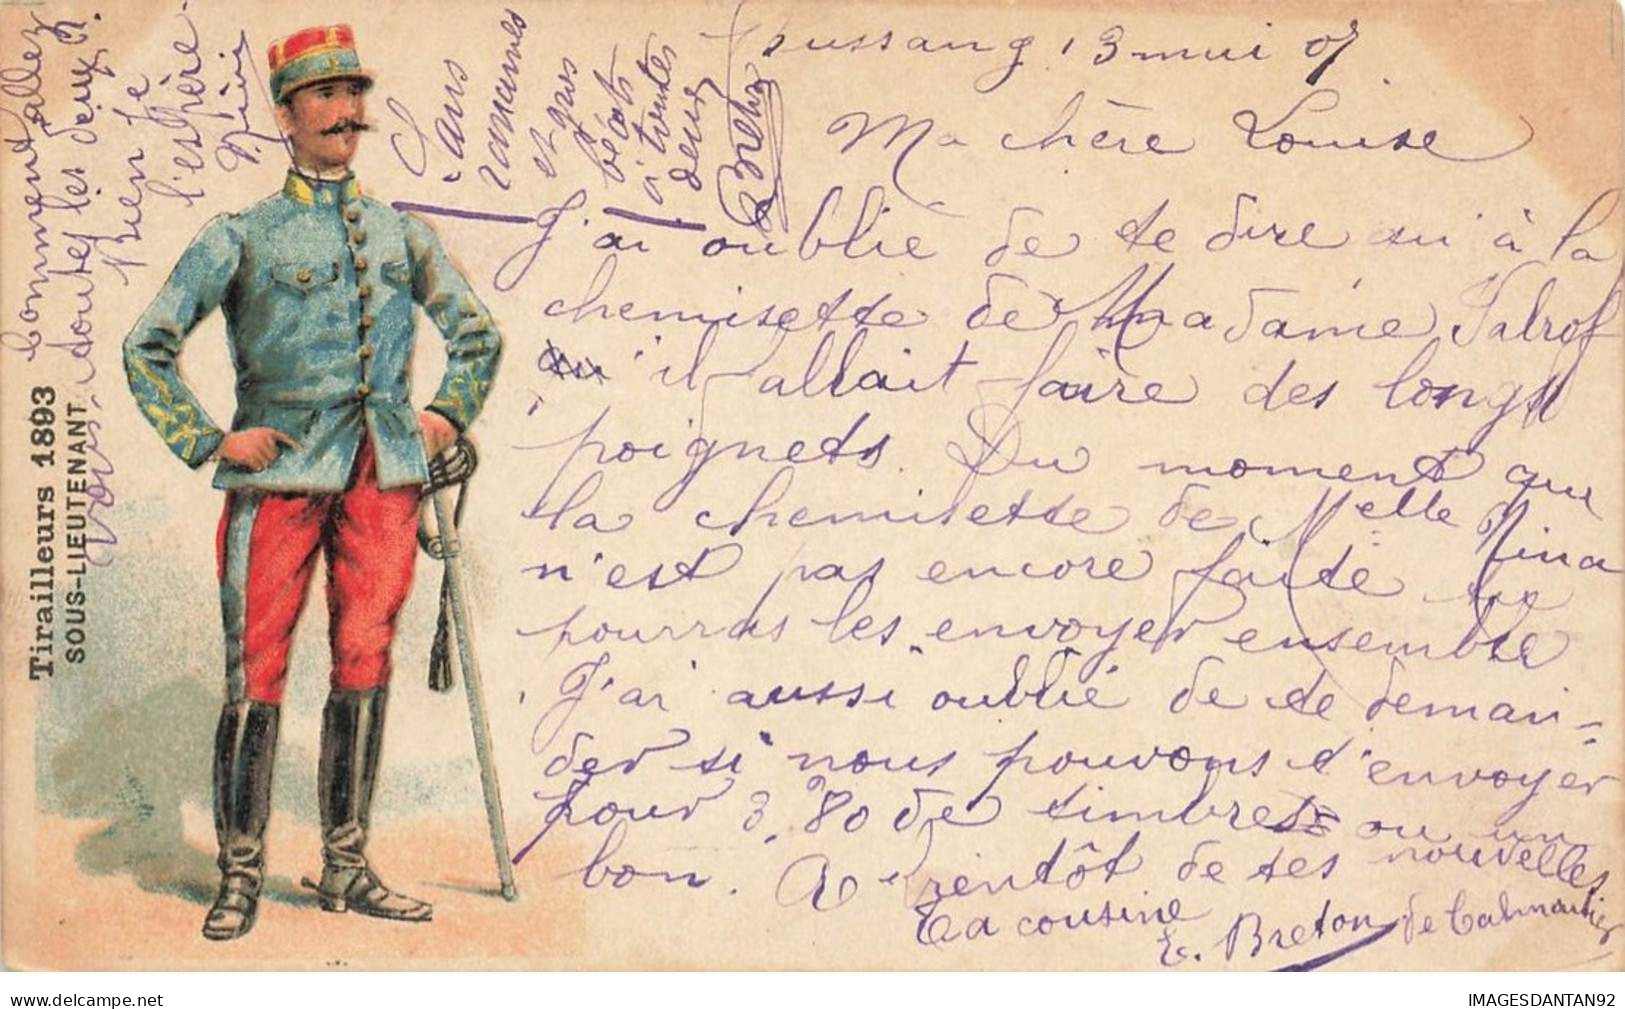 Bussang 13 mai 07
Ma chère Louise
J'ai oublié de te dire qu'à la
chemisette de Madame
qu'il fallait faire des longs
poignets. Du moment que
la chemisette de Melle Nina
n'est pas encore faite tu
pourras les envoyer ensemble
J'ai aussi oublié de te deman-
der si nous pouvons t'envoyer
pour 3,80 de timbres ou un
bon. A bientôt de tes nouvelles
Ta cousine
E. Breton de
Sans
rancunes
et gros
bécots
à toutes
deux
Comment allez
vous, toutes les deux ?
Bien je
l'espère
Tirailleurs 1893
SOUS-LIEUTENANT
IMAGESDANTAN92